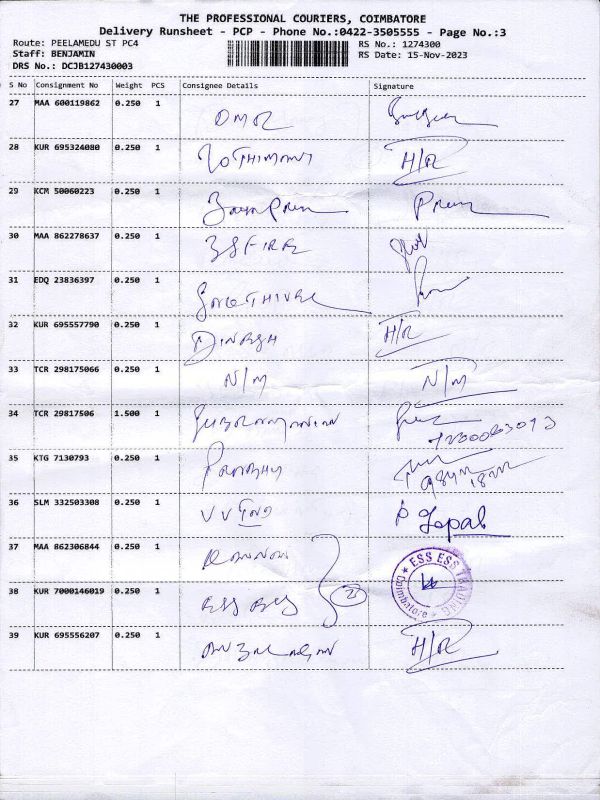 THE PROFESSIONAL COURIERS, COIMBATORE
Delivery Runsheet - PCP - Phone No.:0422-3505555 - Page No.:3
Route: PEELAMEDU ST PC4
RS No.: 1274300
Staff: BENJAMIN
RS Date: 15-Nov-2023
DRS No.: DCJB127430003
S No Consignment No Weight PCS Consignee Details Signature
27 MAA 600119862 0.250 1
28 KUR 695324080 0.250 1 JOTHIMANI H/R
29 KCM 50060223 0.250 1 Prem
30 MAA 862278637 0.250 1
31 EDQ 23836397 0.250 1
32 KUR 695557790 0.250 1 DINESH H/R
33 TCR 298175066 0.250 1 N/M N/M
34 TCR 29817506 1.500 1
35 KTG 7130793 0.250 1 PRABHU
36 SLM 332503308 0.250 1 P Gopal
37 MAA 862306844 0.250 1
38 KUR 7000146019 0.250 1 ESS ESS 2
ESS ESS TRADING
Coimbatore
39 KUR 695556207 0.250 1 H/R